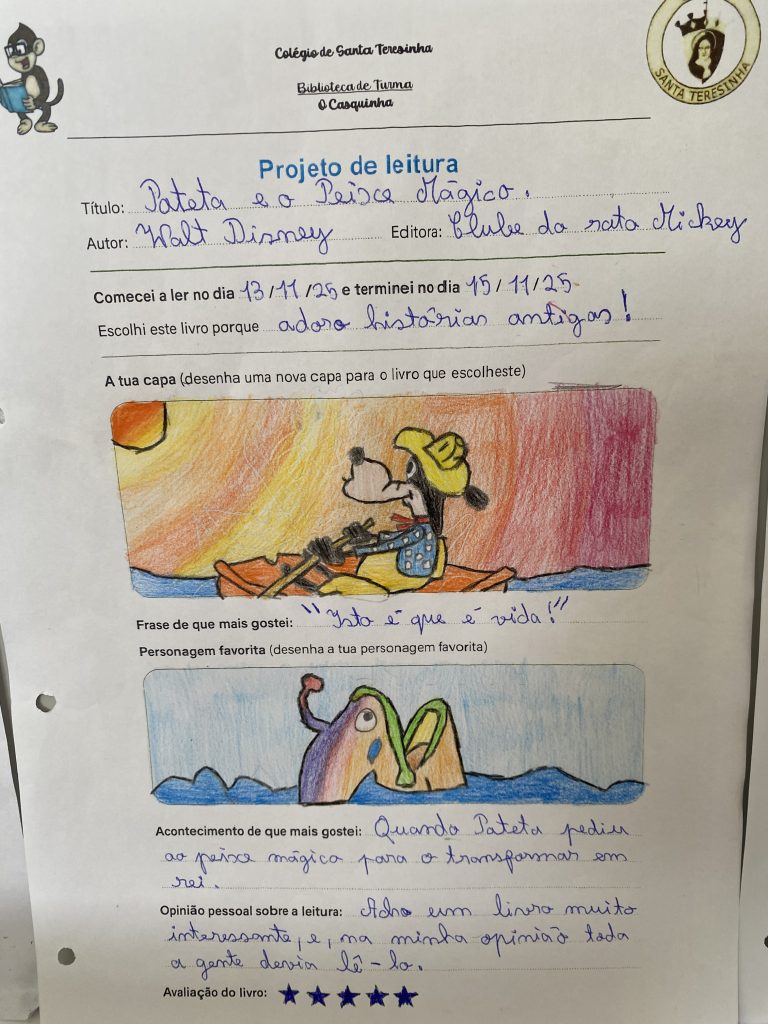 Colégio de Santa Teresinha
SANTA TERESINHA
Biblioteca de Turma
O Casquinha
Projeto de leitura
Título: Pateta e o Peixe Mágico.
Autor: Walt Disney Editora: Clube do rato Mickey
Comecei a ler no dia 13/11/25 e terminei no dia 15/11/25
Escolhi este livro porque adoro histórias antigas!
A tua capa (desenha uma nova capa para o livro que escolheste)
Frase de que mais gostei: "Isto é que é vida!"
Personagem favorita (desenha a tua personagem favorita)
Acontecimento de que mais gostei: Quando Pateta pediu
ao peixe mágico para o transformar em
rei.
Opinião pessoal sobre a leitura: Acho um livro muito
interessante, e, na minha opinião toda
a gente devia lê-lo.
Avaliação do livro: ★ ★ ★ ★ ★